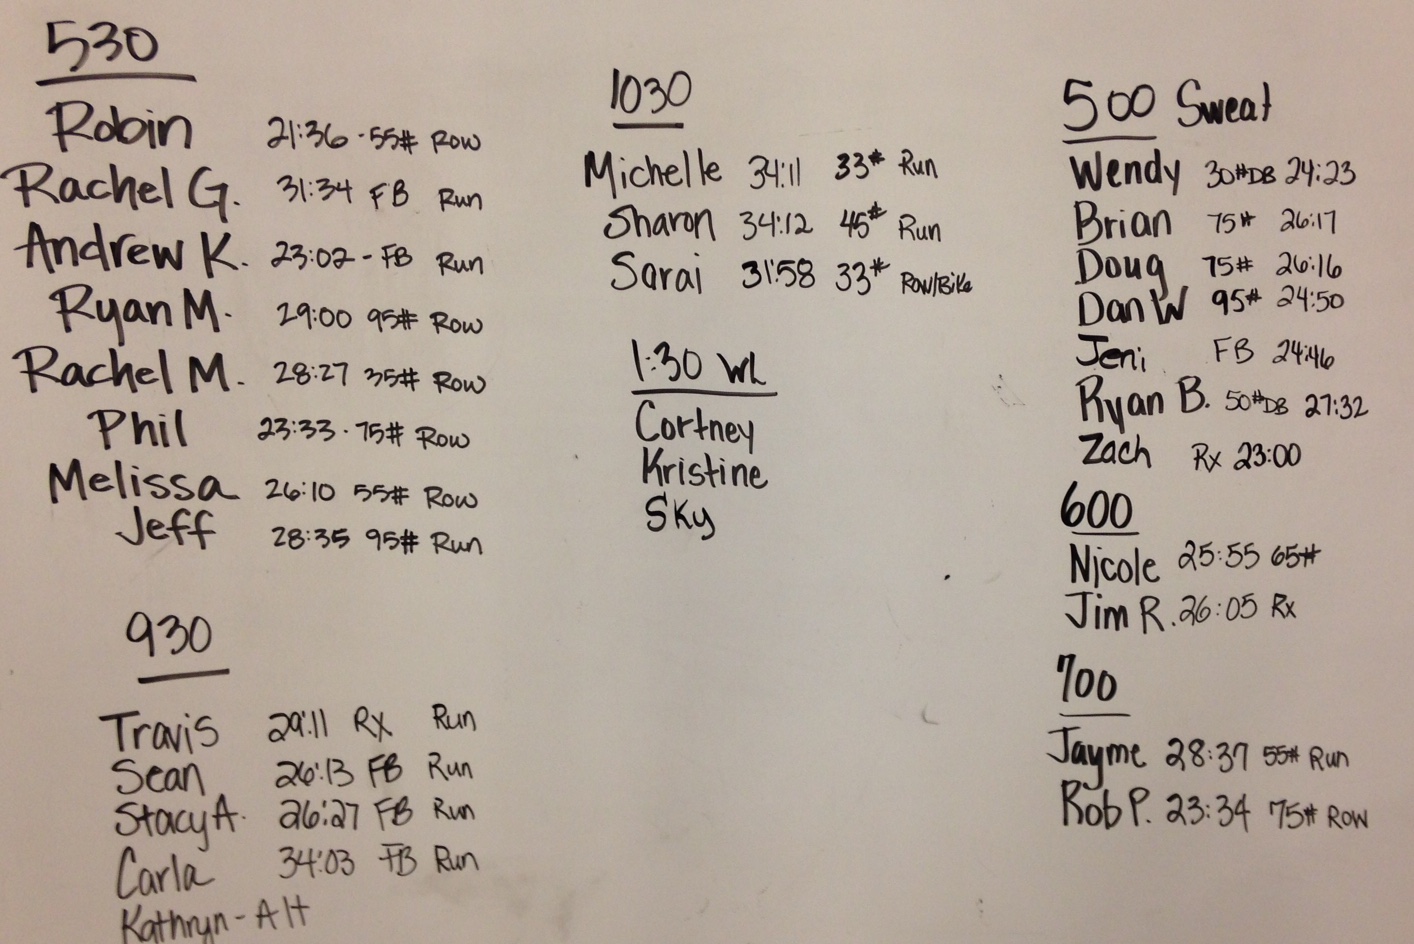 530
Robin 21:36 - 55# Row
Rachel G. 31:34 FB Run
Andrew K. 23:02 - FB Run
Ryan M. 29:00 95# Row
Rachel M. 28:27 35# Row
Phil 23:33 - 75# Row
Melissa 26:10 55# Row
Jeff 28:35 95# Run
930
Travis 29:11 Rx Run
Sean 26:13 FB Run
Stacy A. 26:27 FB Run
Carla 34:03 FB Run
Kathryn - Alt
1030
Michelle 34:11 33# Run
Sharon 34:12 45# Run
Sarai 31:58 33# Row/Bike
1:30 WL
Cortney
Kristine
Sky
500 Sweat
Wendy 30#DB 24:23
Brian 75# 26:17
Doug 75# 26:16
Dan W 95# 24:50
Jeni FB 24:46
Ryan B. 50#DB 27:32
Zach Rx 23:00
600
Nicole 25:55 65#
Jim R. 26:05 Rx
700
Jayme 28:37 55# Run
Rob P. 23:34 75# Row